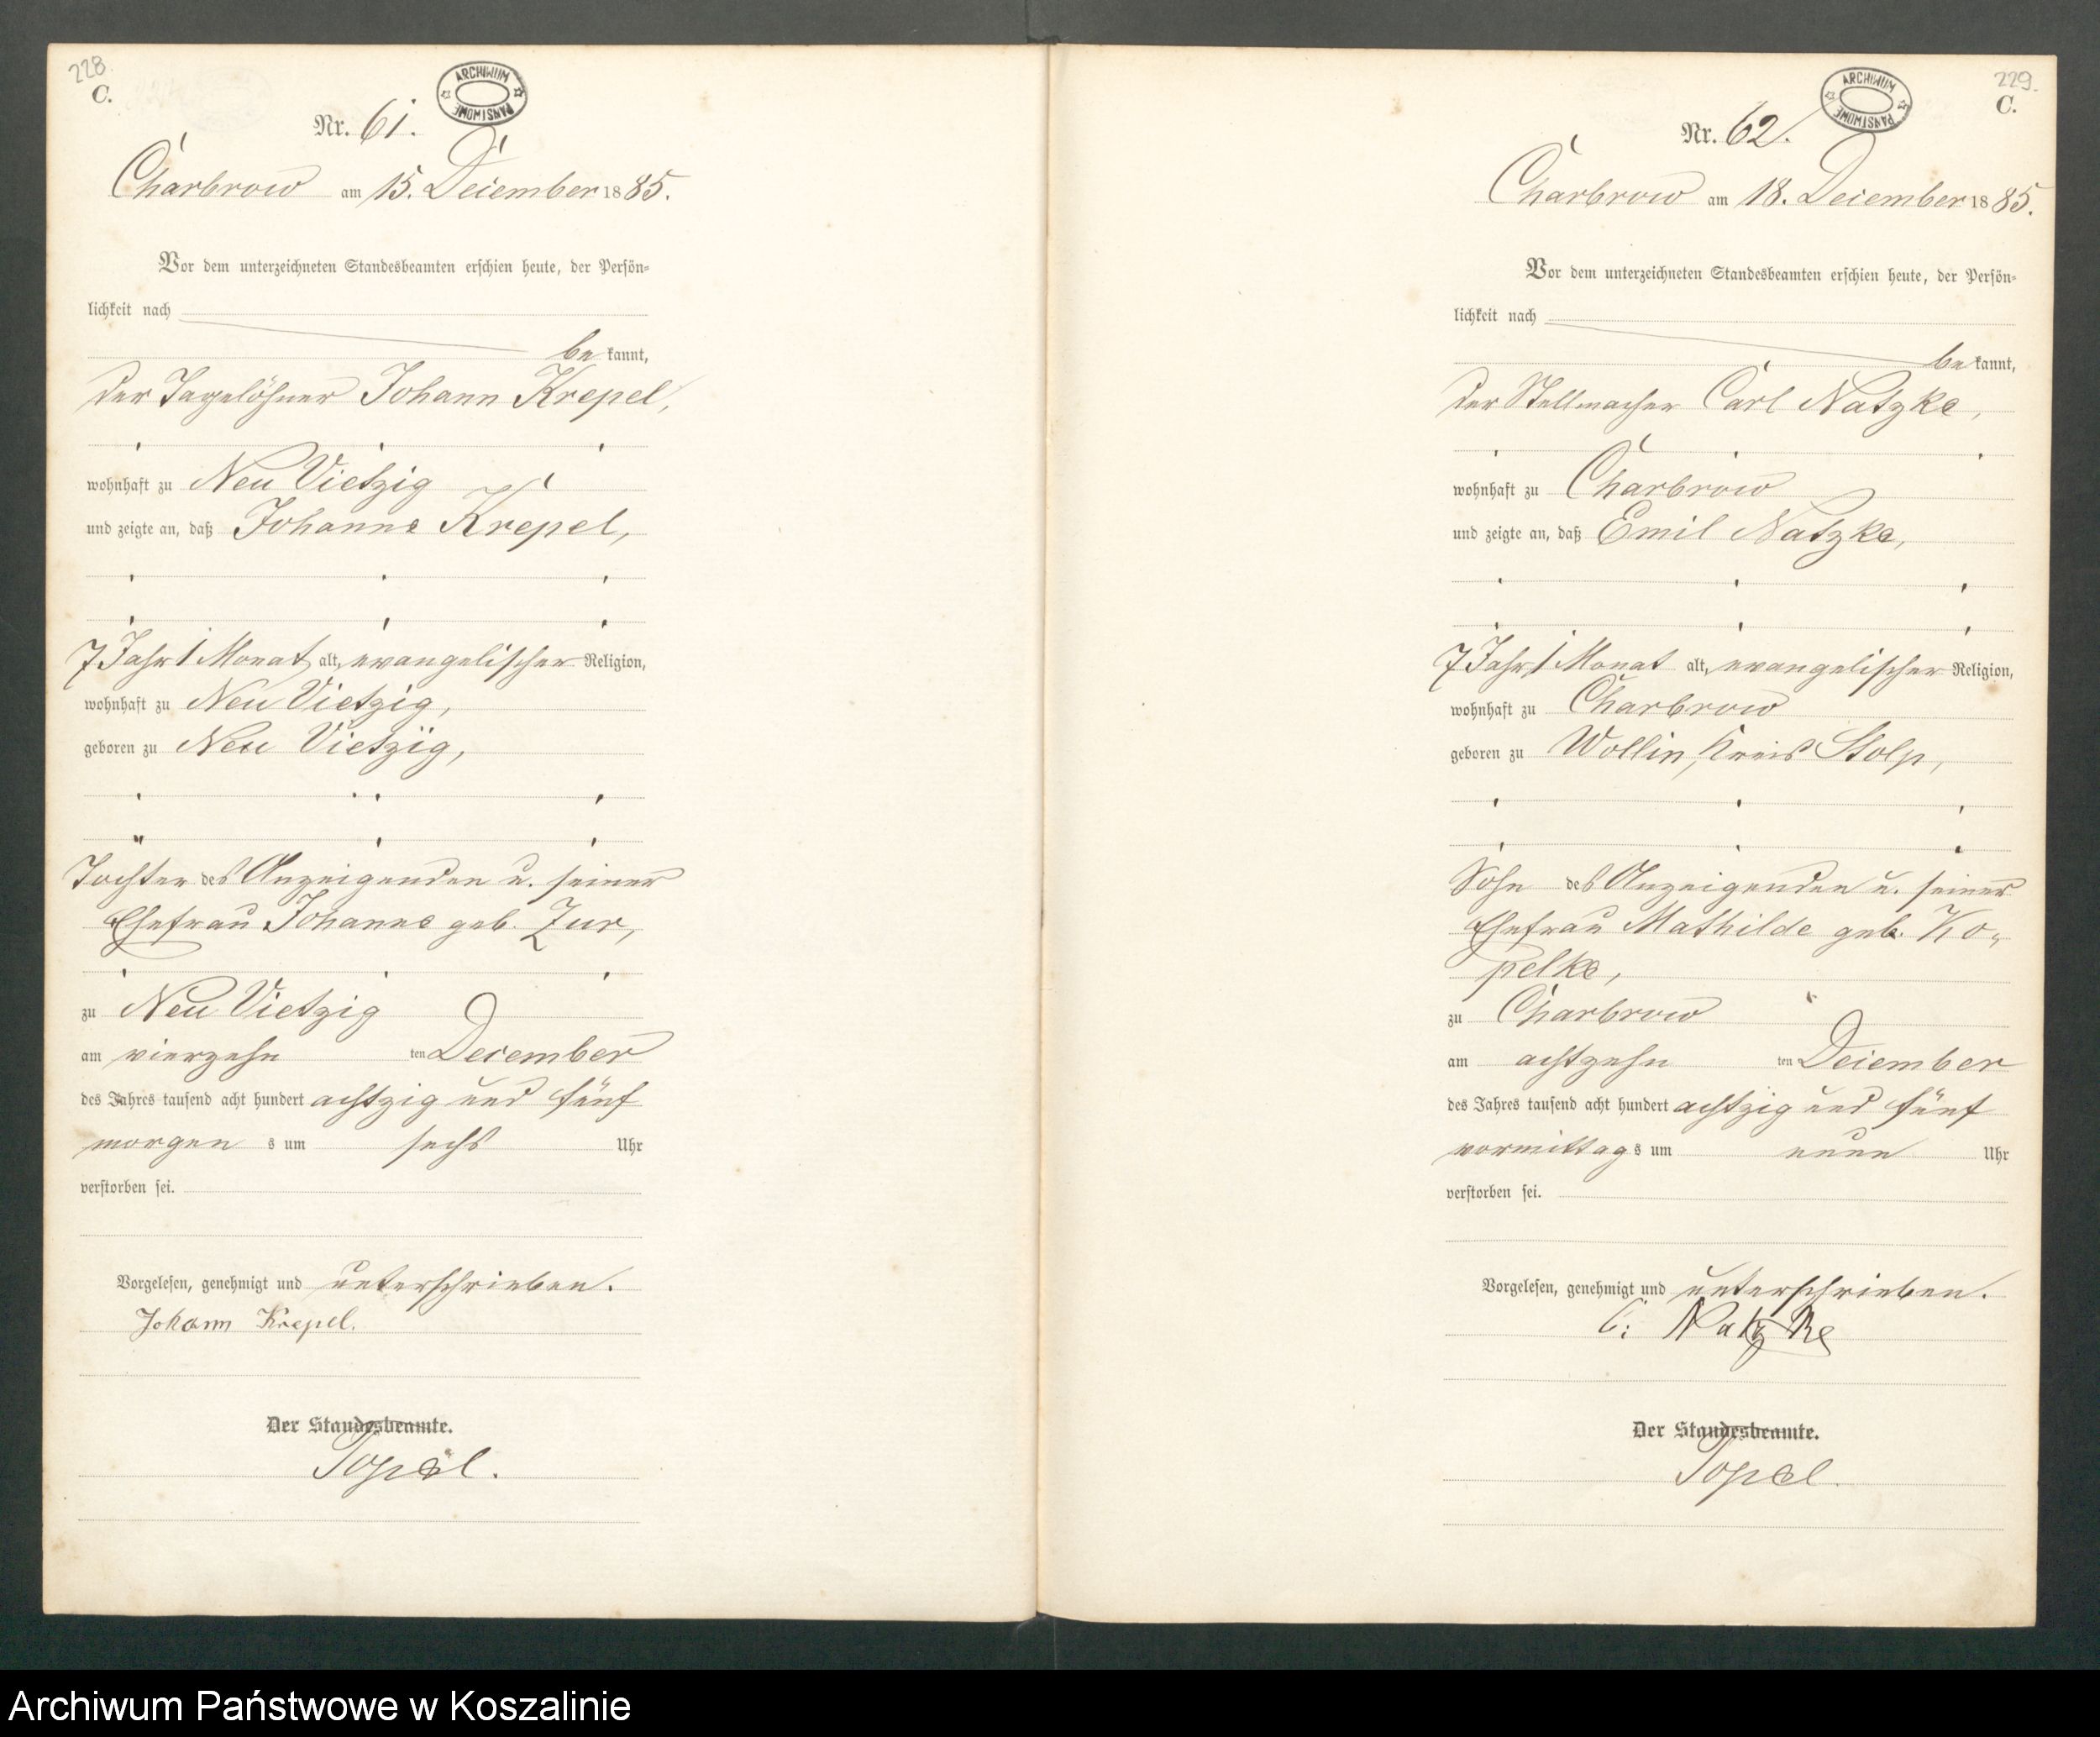 228.
C.
ARCHIWUM
PAŃSTWOWE
Nr. 61.
Charbrow am 15. December 1885.
Vor dem unterzeichneten Standesbeamten erschien heute, der Persön-
lichkeit nach
be kannt,
der Tagelöhner Johann Krepel,
wohnhaft zu Neu Vietzig
und zeigte an, daß Johanne Krepel,
7 Jahr 1 Monat alt, evangelischer Religion,
wohnhaft zu Neu Vietzig,
geboren zu Neu Vietzig,
Tochter des Anzeigenden u. seiner
Ehefrau Johanne geb. Zur,
zu Neu Vietzig
am vierzehn ten December
des Jahres tausend acht hundert achtzig und fünf
morgen s um sechs Uhr
verstorben sei.
Vorgelesen, genehmigt und unterschrieben.
Johann Krepel.
Der Standesbeamte.
Topel.
229.
C.
ARCHIWUM
PAŃSTWOWE
Nr. 62.
Charbrow am 18. December 1885.
Vor dem unterzeichneten Standesbeamten erschien heute, der Persön-
lichkeit nach
be kannt,
der Stellmacher Carl Natzke,
wohnhaft zu Charbrow
und zeigte an, daß Emil Natzke,
7 Jahr 1 Monat alt, evangelischer Religion,
wohnhaft zu Charbrow
geboren zu Wollin, Kreis Stolp,
Sohn des Anzeigenden u. seiner
Ehefrau Mathilde geb. Ko-
pelke,
zu Charbrow
am achtzehn ten December
des Jahres tausend acht hundert achtzig und fünf
vormittag s um neun Uhr
verstorben sei.
Vorgelesen, genehmigt und unterschrieben.
C: Natzke
Der Standesbeamte.
Topel.
Archiwum Państwowe w Koszalinie